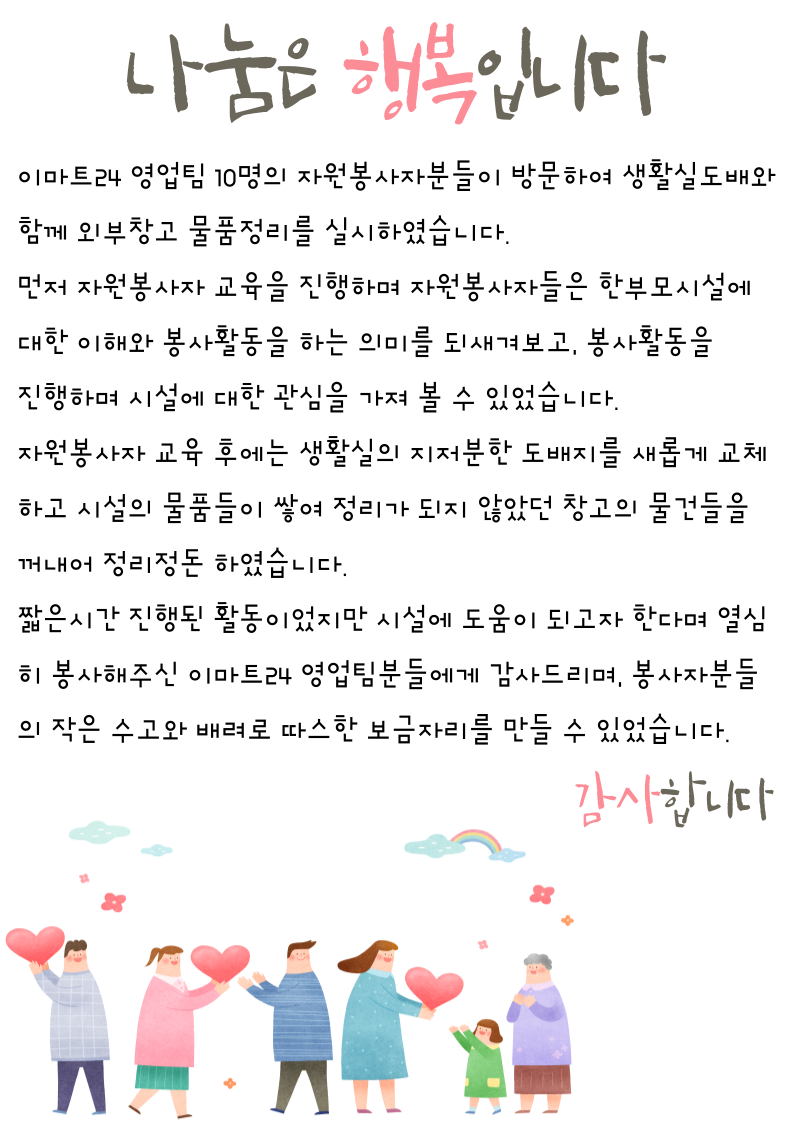 나눔은 행복입니다
이마트24 영업팀 10명의 자원봉사자분들이 방문하여 생활실도배와
함께 외부창고 물품정리를 실시하였습니다.
먼저 자원봉사자 교육을 진행하며 자원봉사자들은 한부모시설에
대한 이해와 봉사활동을 하는 의미를 되새겨보고, 봉사활동을
진행하며 시설에 대한 관심을 가져 볼 수 있었습니다.
자원봉사자 교육 후에는 생활실의 지저분한 도배지를 새롭게 교체
하고 시설의 물품들이 쌓여 정리가 되지 않았던 창고의 물건들을
꺼내어 정리정돈 하였습니다.
짧은시간 진행된 활동이었지만 시설에 도움이 되고자 한다며 열심
히 봉사해주신 이마트24 영업팀분들에게 감사드리며, 봉사자분들
의 작은 수고와 배려로 따스한 보금자리를 만들 수 있었습니다.
감사합니다